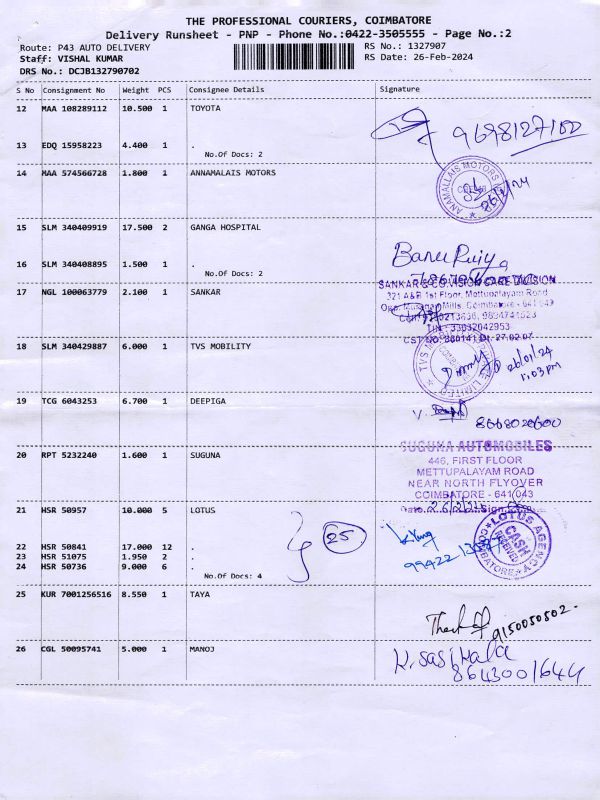 THE PROFESSIONAL COURIERS, COIMBATORE
Delivery Runsheet - PNP - Phone No.:0422-3505555 - Page No.:2
Route: P43 AUTO DELIVERY RS No.: 1327907
Staff: VISHAL KUMAR RS Date: 26-Feb-2024
DRS No.: DCJB132790702
S No Consignment No Weight PCS Consignee Details Signature
12 MAA 108289112 10.500 1 TOYOTA
13 EDQ 15958223 4.400 1 .
No.Of Docs: 2
14 MAA 574566728 1.800 1 ANNAMALAIS MOTORS
ANAMALLAIS MOTORS
15 SLM 340409919 17.500 2 GANGA HOSPITAL
16 SLM 340408895 1.500 1 .
No.Of Docs: 2
17 NGL 100063779 2.100 1 SANKAR
321 A&B 1st Floor, Mettupalayam Road
TIN - 33632042953
18 SLM 340429887 6.000 1 TVS MOBILITY
26/01/24
1:03pm
19 TCG 6043253 6.700 1 DEEPIGA
20 RPT 5232240 1.600 1 SUGUNA
SUGUNA AUTOMOBILES
446, FIRST FLOOR
METTUPALAYAM ROAD
NEAR NORTH FLYOVER
COIMBATORE - 641 043
21 HSR 50957 10.000 5 LOTUS
25
LOTUS AGENCY
COIMBATORE
CASH
22 HSR 50841 17.000 12 .
23 HSR 51075 1.950 2 .
24 HSR 50736 9.000 6 .
No.Of Docs: 4
25 KUR 7001256516 8.550 1 TAYA
9150050502.
26 CGL 50095741 5.000 1 MANOJ
8643001644